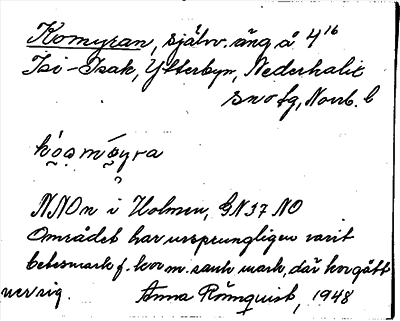 Komyran, självv. äng å 4¹⁶
Isi-Isak, Ytterbyn, Nederkalix
snofg, Norrb. l
kọ́ọmýra
NNOn i Holmen, GN37 NO
Området har ursprungligen varit
betesmark f. kor m. sank mark, där kor gått
ner sig. Anna Rönnquist, 1948